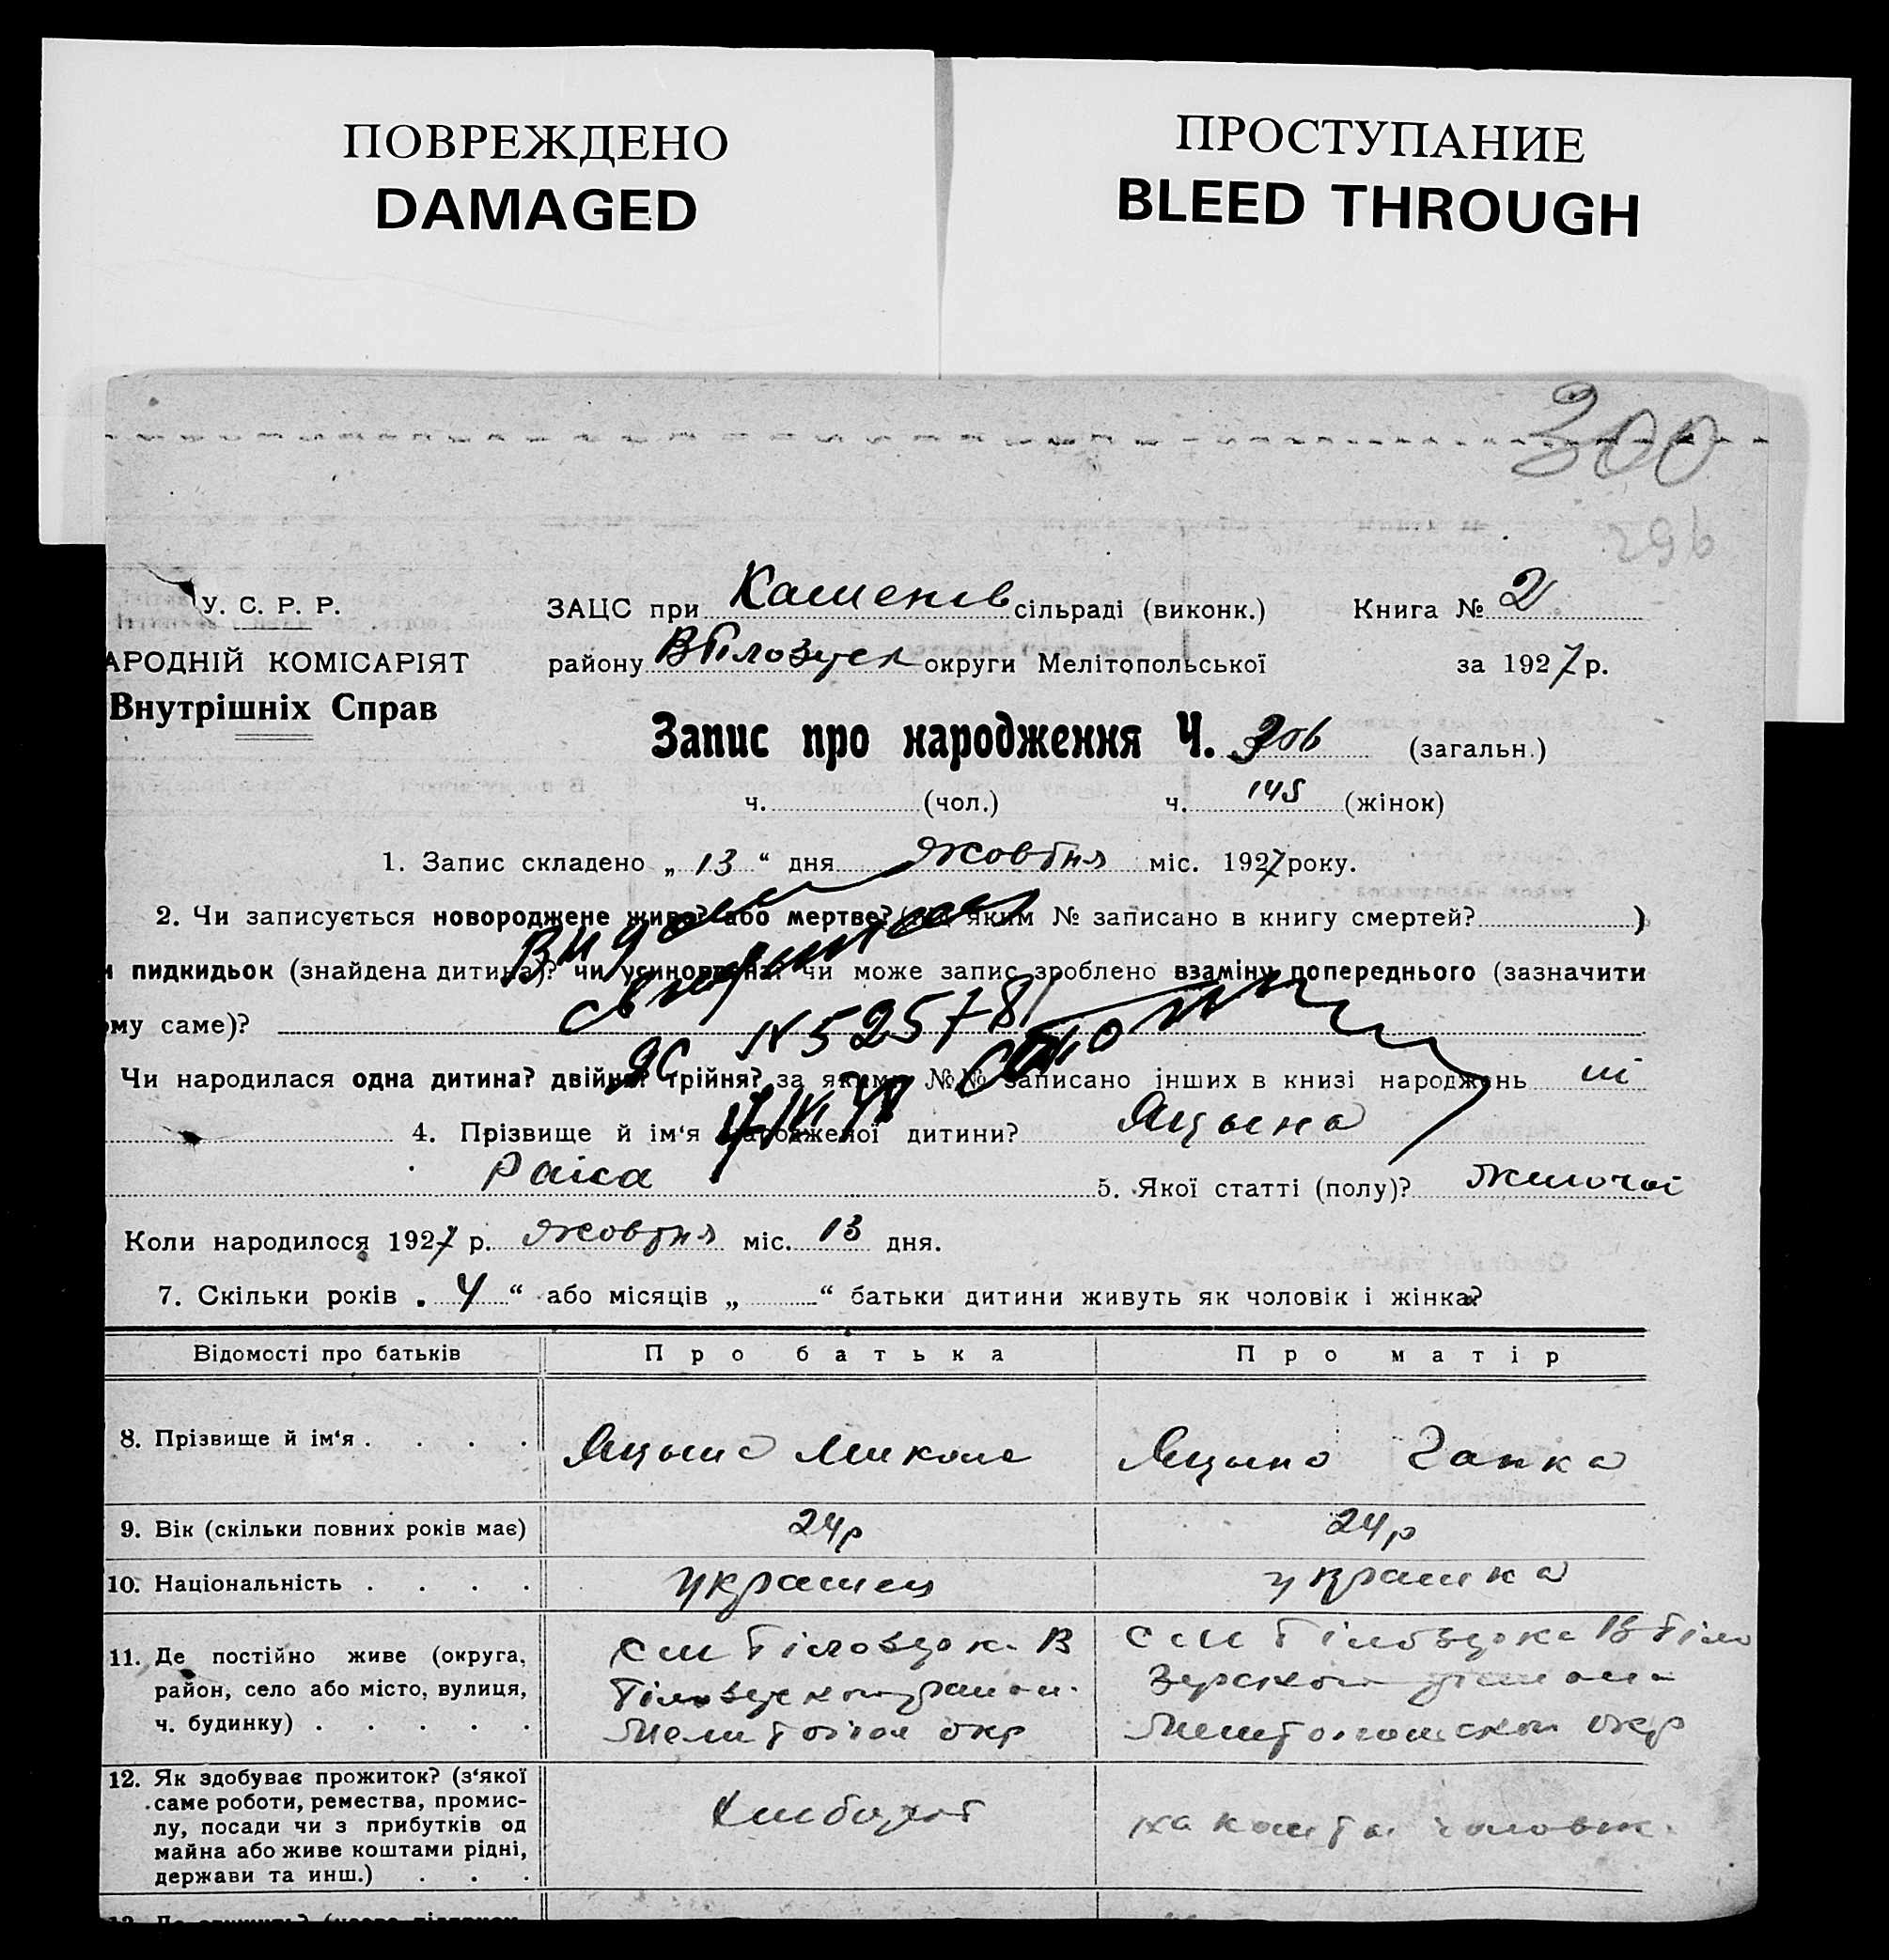 ПОВРЕЖДЕНО
DAMAGED
ПРОСТУПАНИЕ
BLEED THROUGH
300
296
У. С. Р. Р.
АРОДНІЙ КОМІСАРІЯТ
Внутрішніх Справ
ЗАЦС при Каменів сільраді (виконк.) Книга № 2
району ВБілозерск округи Мелітопольської за 1927 р.
Запис про народження Ч. 306 (загальн.)
ч. (чол.) ч. 145 (жінок)
1. Запис складено „ 13 “ дня жовтня міс. 1927 року.
2. Чи записується новороджене живе? або мертве? (під яким № записано в книгу смертей? )
и пидкидьок (знайдена дитина)? чи усиновлена? чи може запис зроблено взаміну попереднього (зазначити
ому саме)?
N 525781
Чи народилася одна дитина? двійня? трійня? за якими №№ записано інших в книзі народжень ні
4. Прізвище й ім‘я народженої дитини? Яцына
Раіса 5. Якої статті (полу)? жіночої
Коли народилося 1927 р. жовтня міс. 13 дня.
7. Скільки років „ 4 “ або місяців „ “ батьки дитини живуть як чоловік і жінка?
Відомості про батьків Про батька Про матір
8. Прізвище й ім‘я . . . . Яцына Микола Яцына Ганка
9. Вік (скільки повних років має) 24р 24р
10. Національність . . . . украинец украинка
11. Де постійно живе (округа,
район, село або місто, вулиця,
ч. будинку) . . . . .
12. Як здобуває прожиток? (з‘якої
саме роботи, ремества, промис-
лу, посади чи з прибутків од
майна або живе коштами рідні,
держави та инш.) . . .
Хлібороб
на кошти чоловік.